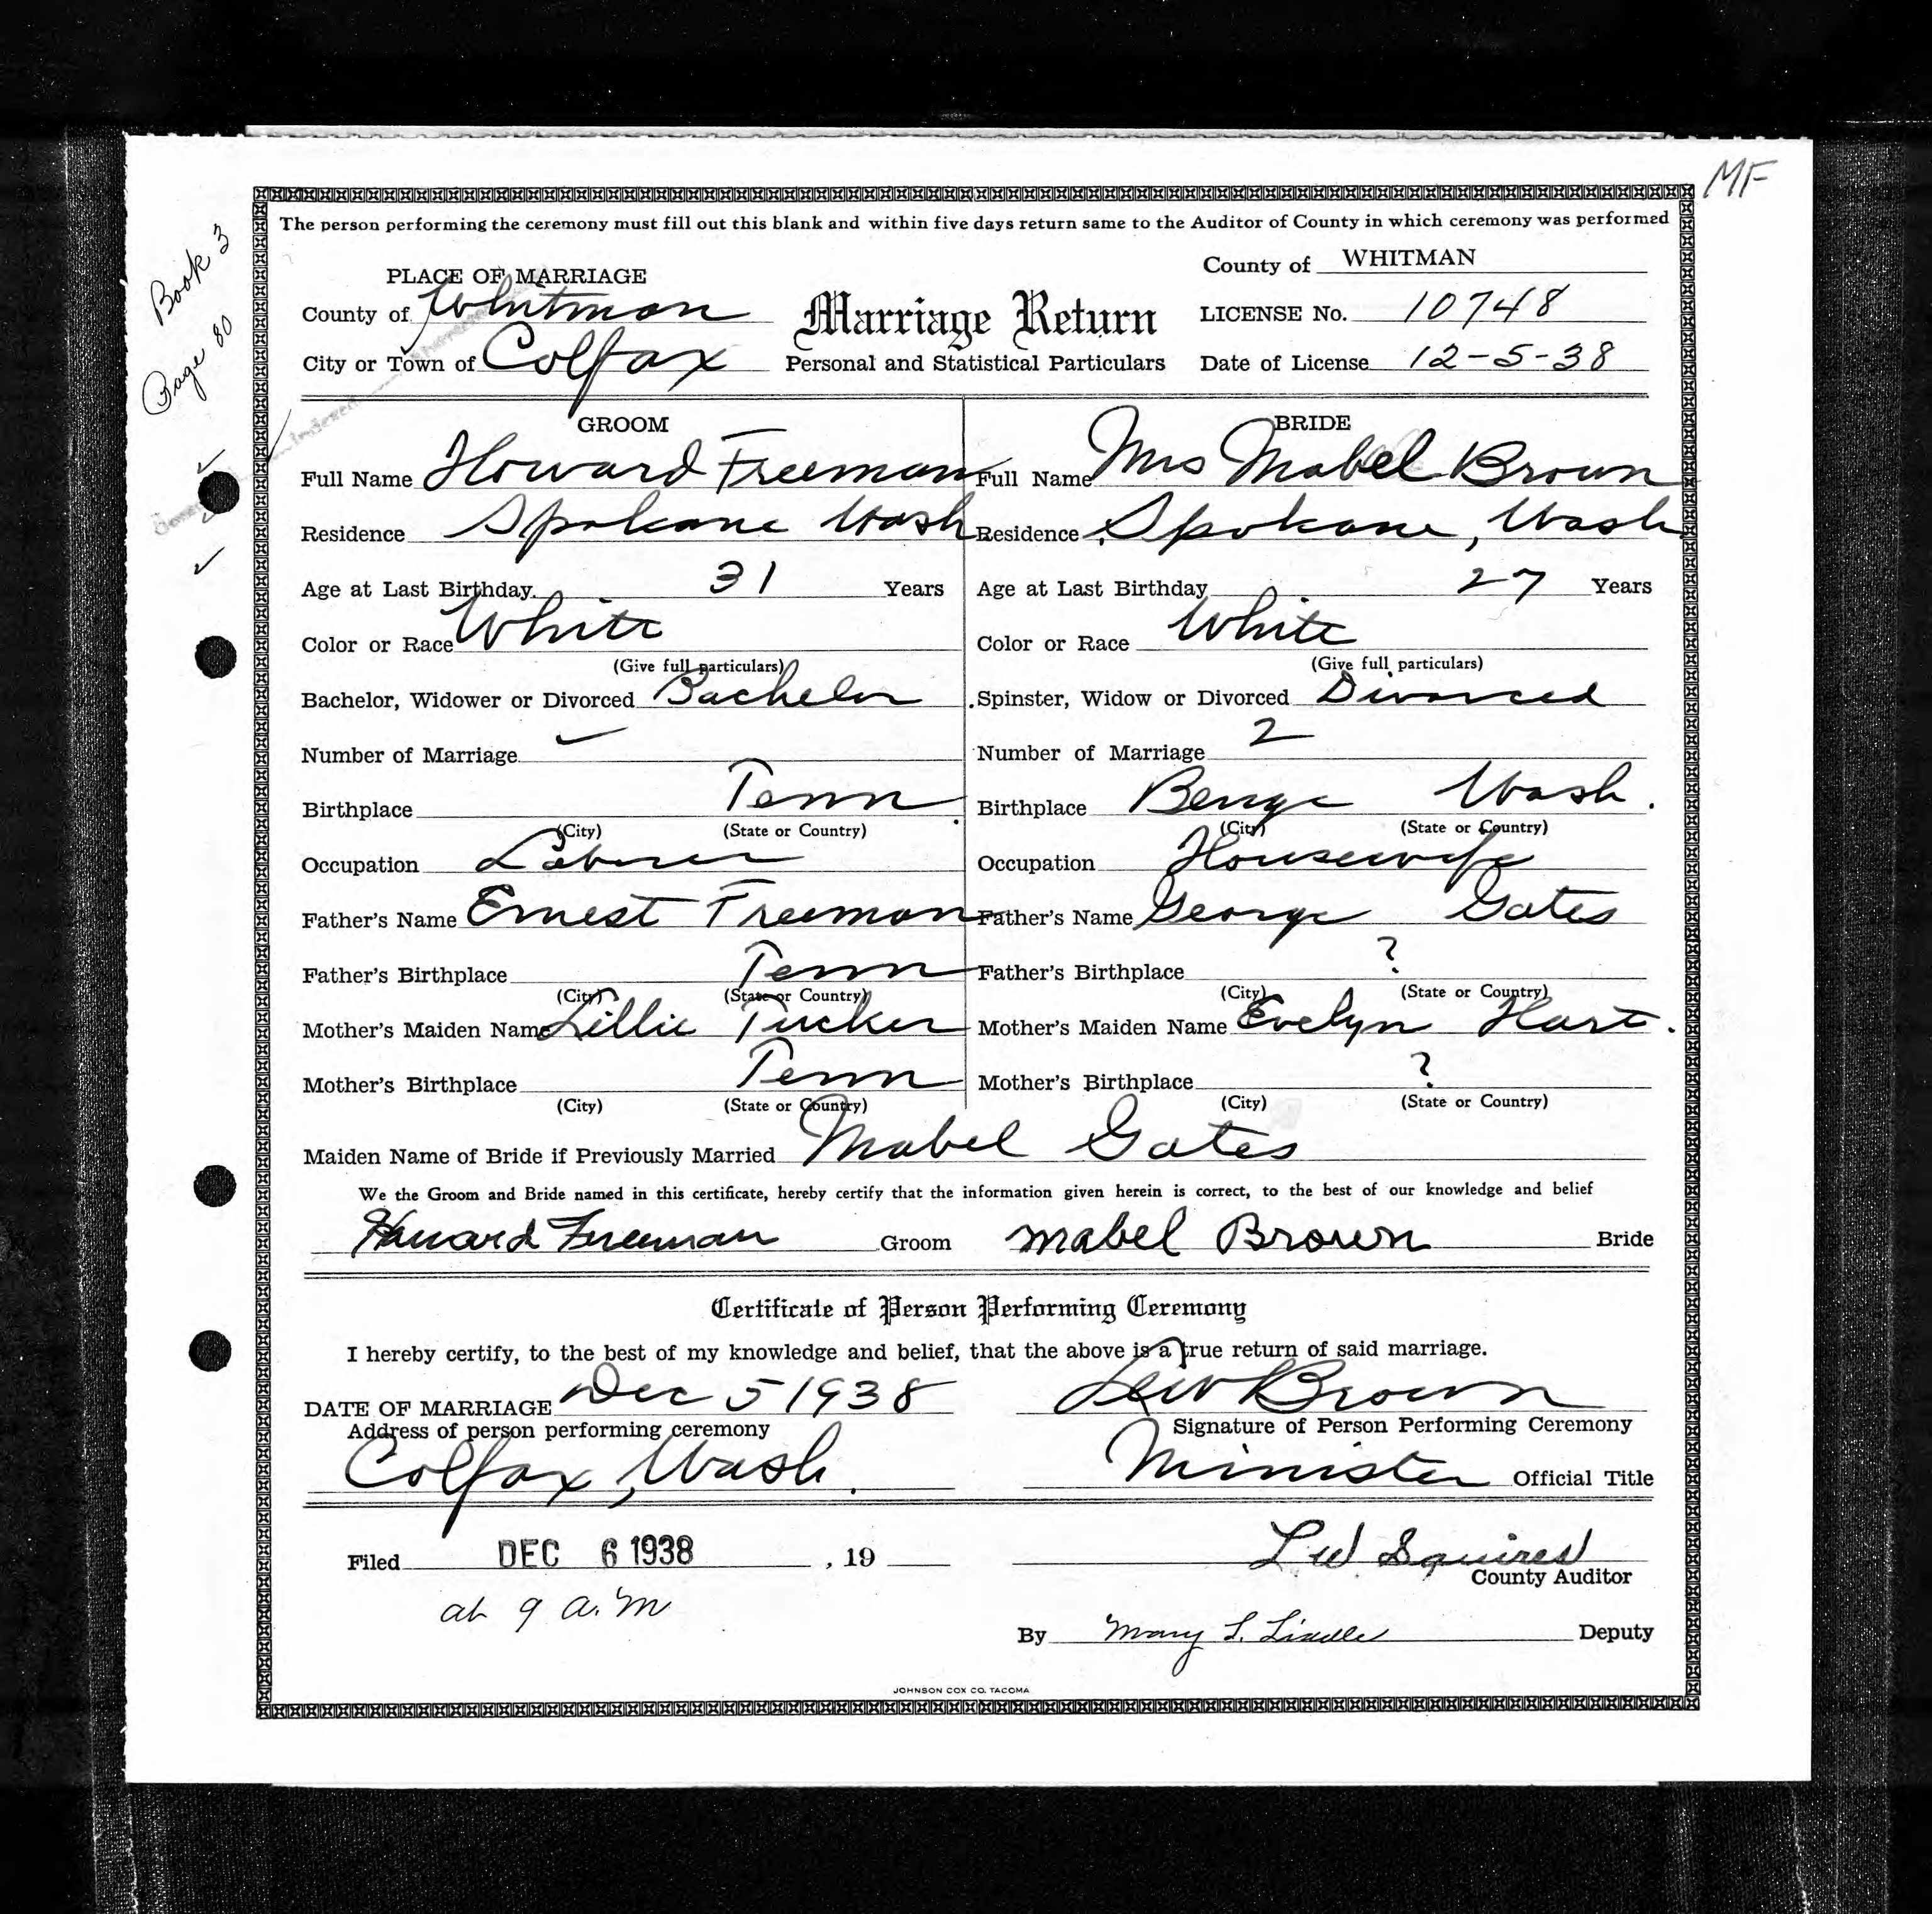 MF
The person performing the ceremony must fill out this blank and within five days return same to the Auditor of County in which ceremony was performed
Book 3
Page 80
PLACE OF MARRIAGE
County of Whitman
City or Town of Colfax
Marriage Return
Personal and Statistical Particulars
County of WHITMAN
LICENSE No. 10748
Date of License 12-5-38
Indexed
GROOM
Full Name Howard Freeman
Residence Spokane Wash
Age at Last Birthday 31 Years
Color or Race White
(Give full particulars)
Bachelor, Widower or Divorced Bachelor
Number of Marriage
Birthplace Tenn
(City) (State or Country)
Occupation Laborer
Father's Name Ernest Freeman
Father's Birthplace Tenn
(City) (State or Country)
Mother's Maiden Name Lillie Tucker
Mother's Birthplace Tenn
(City) (State or Country)
BRIDE
Full Name Mrs Mabel Brown
Residence Spokane, Wash
Age at Last Birthday 27 Years
Color or Race White
(Give full particulars)
Spinster, Widow or Divorced Divorced
Number of Marriage 2
Birthplace Benge Wash.
(City) (State or Country)
Occupation Housewife
Father's Name George Gates
Father's Birthplace ?
(City) (State or Country)
Mother's Maiden Name Evelyn Hart.
Mother's Birthplace ?
(City) (State or Country)
Maiden Name of Bride if Previously Married Mabel Gates
We the Groom and Bride named in this certificate, hereby certify that the information given herein is correct, to the best of our knowledge and belief
Howard Freeman Groom Mabel Brown Bride
Certificate of Person Performing Ceremony
I hereby certify, to the best of my knowledge and belief, that the above is a true return of said marriage.
DATE OF MARRIAGE Dec 5 1938
Address of person performing ceremony
Colfax, Wash.
Brown
Signature of Person Performing Ceremony
Minister Official Title
Filed DEC 6 1938 , 19
at 9 a.m
L W Squires
County Auditor
By Mary L. Liddle Deputy
JOHNSON COX CO. TACOMA